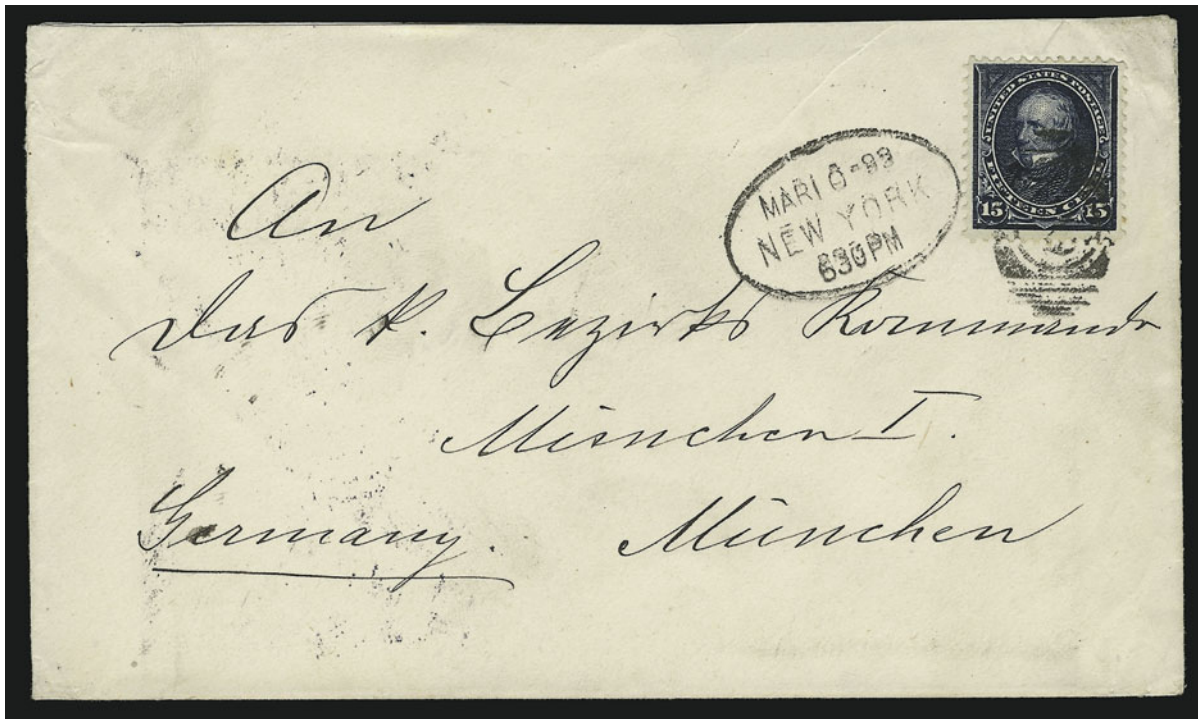 UNITED STATES POSTAGE
FIFTEEN
15 15
MAR 10-93
NEW YORK
630PM
An
das K. Bezirks Kommando
München I.
Germany. München